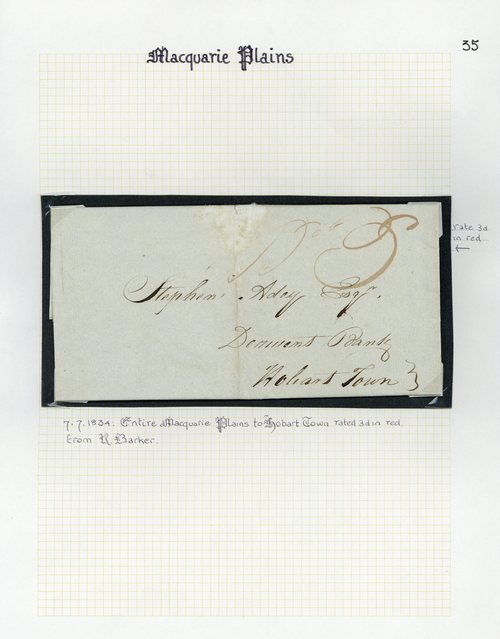 35
Macquarie Plains
rate 3d
in red
Stephen Adey Esqr.
Derwent Bank
Hobart Town
7.7.1834: Entire Macquarie Plains to Hobart Town rated 3d in red.
from R. Barker.